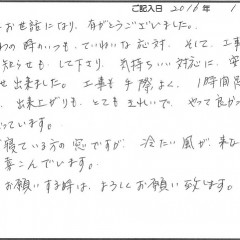 ご記入日 2016年 1
お世話になり、有がとうございました。
の時のいつも、ていねいな応対、そして、工事
知らせも、して下さり、気持ちいい対応に、安
せ出来ました。工事も手際よく、1時間
、出来上がりも、とてもきれいで、やって良かっ
っています。
寝ている方の窓ですが、冷たい風が、来な
喜こんでいます。
お願いする時は、よろしくお願い致します。